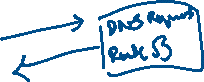 DNS Request
Route 53